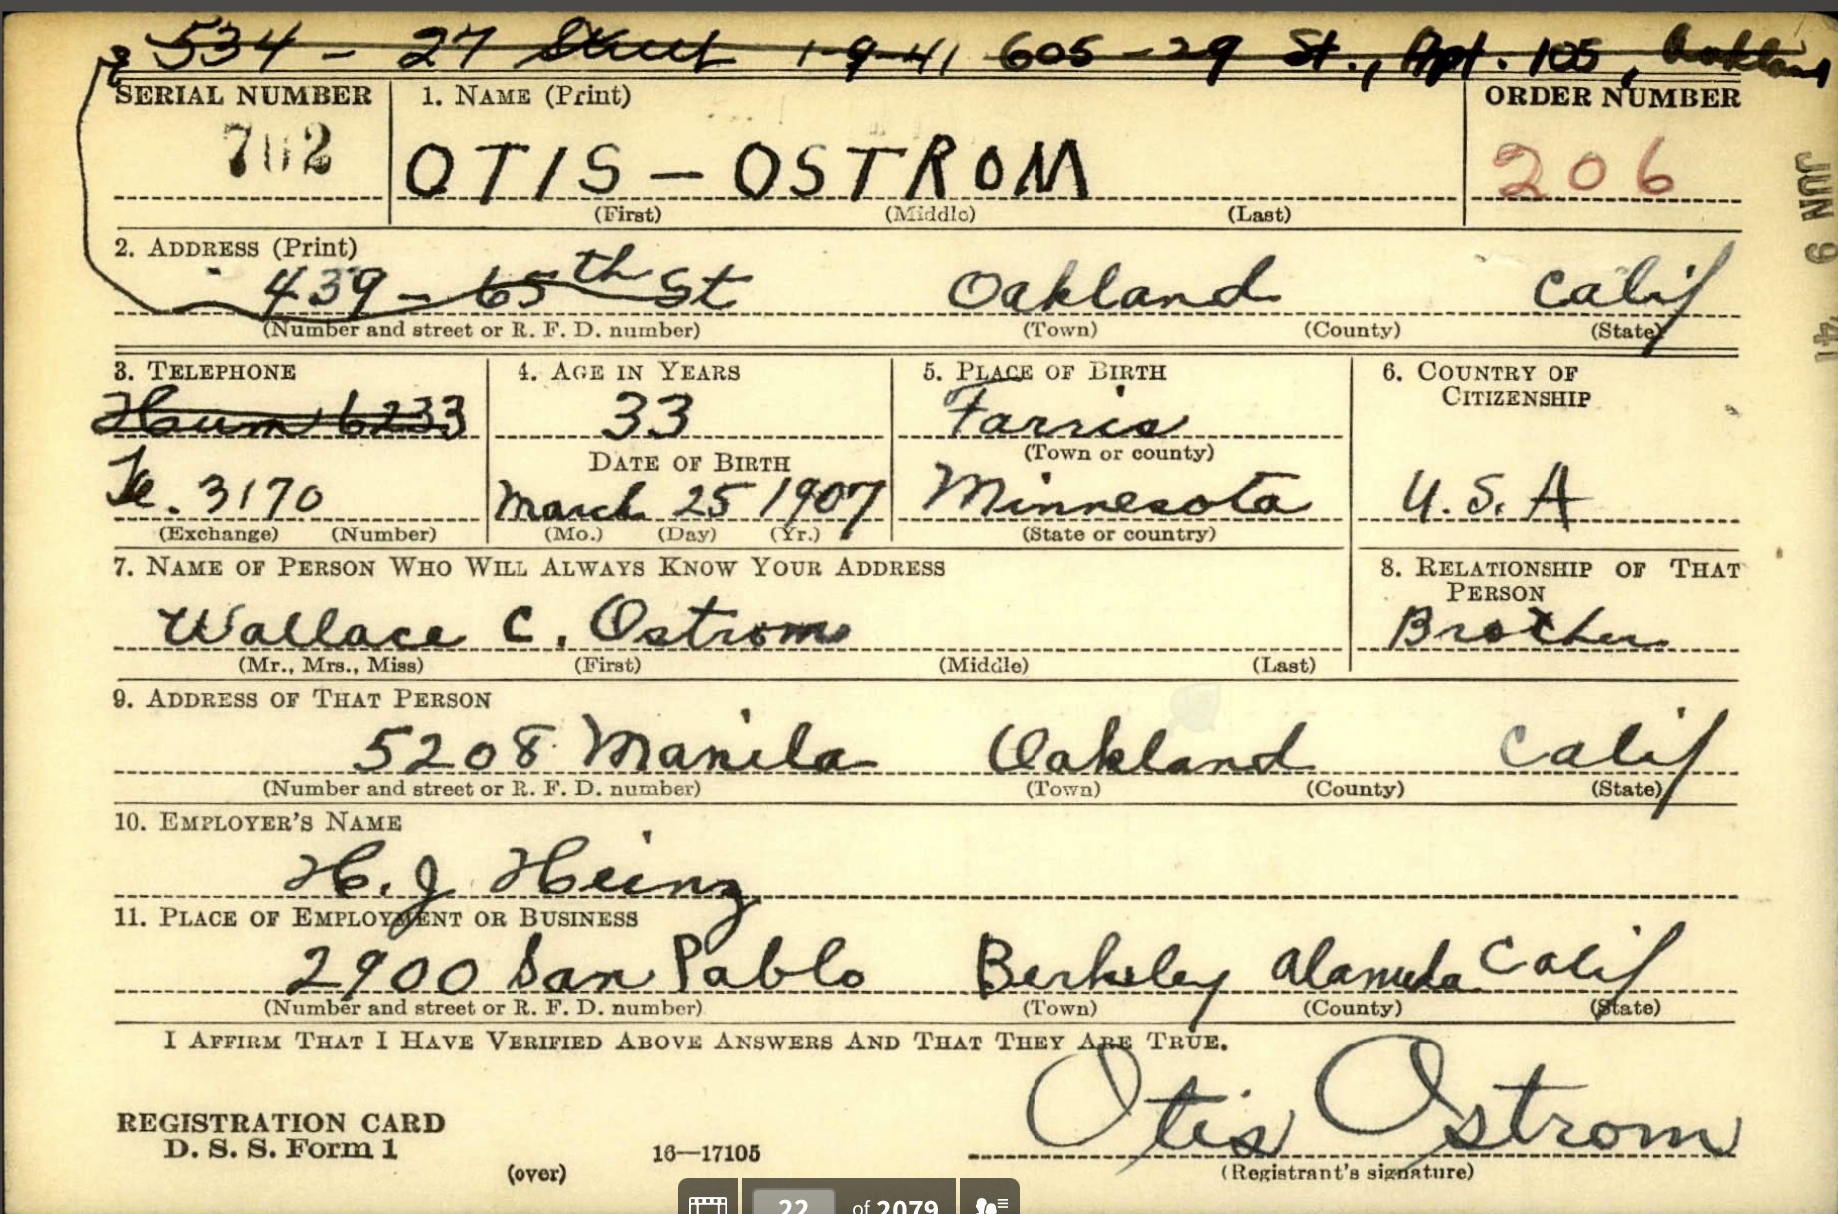 534 - 27 Street 1-9-41 605 - 29 St., Apt. 105, Oakland
SERIAL NUMBER 1. NAME (Print) ORDER NUMBER
702 OTIS - OSTROM 206
(First) (Middle) (Last)
JUN 9 '41
2. ADDRESS (Print)
439 - 65th St Oakland Calif
(Number and street or R. F. D. number) (Town) (County) (State)
3. TELEPHONE 4. AGE IN YEARS 5. PLACE OF BIRTH 6. COUNTRY OF CITIZENSHIP
Hum 6233 33 Farris
(Town or county)
DATE OF BIRTH
Te. 3170 March 25 1907 Minnesota U.S.A
(Exchange) (Number) (Mo.) (Day) (Yr.) (State or country)
7. NAME OF PERSON WHO WILL ALWAYS KNOW YOUR ADDRESS 8. RELATIONSHIP OF THAT PERSON
Wallace C. Ostrom Brother
(Mr., Mrs., Miss) (First) (Middle) (Last)
9. ADDRESS OF THAT PERSON
5208 Manila Oakland Calif
(Number and street or R. F. D. number) (Town) (County) (State)
10. EMPLOYER'S NAME
H. J Heinz
11. PLACE OF EMPLOYMENT OR BUSINESS
2900 San Pablo Berkeley Alameda Calif
(Number and street or R. F. D. number) (Town) (County) (State)
I AFFIRM THAT I HAVE VERIFIED ABOVE ANSWERS AND THAT THEY ARE TRUE.
Otis Ostrom
REGISTRATION CARD
D. S. S. Form 1 16—17105
(over) (Registrant's signature)
22 of 2079